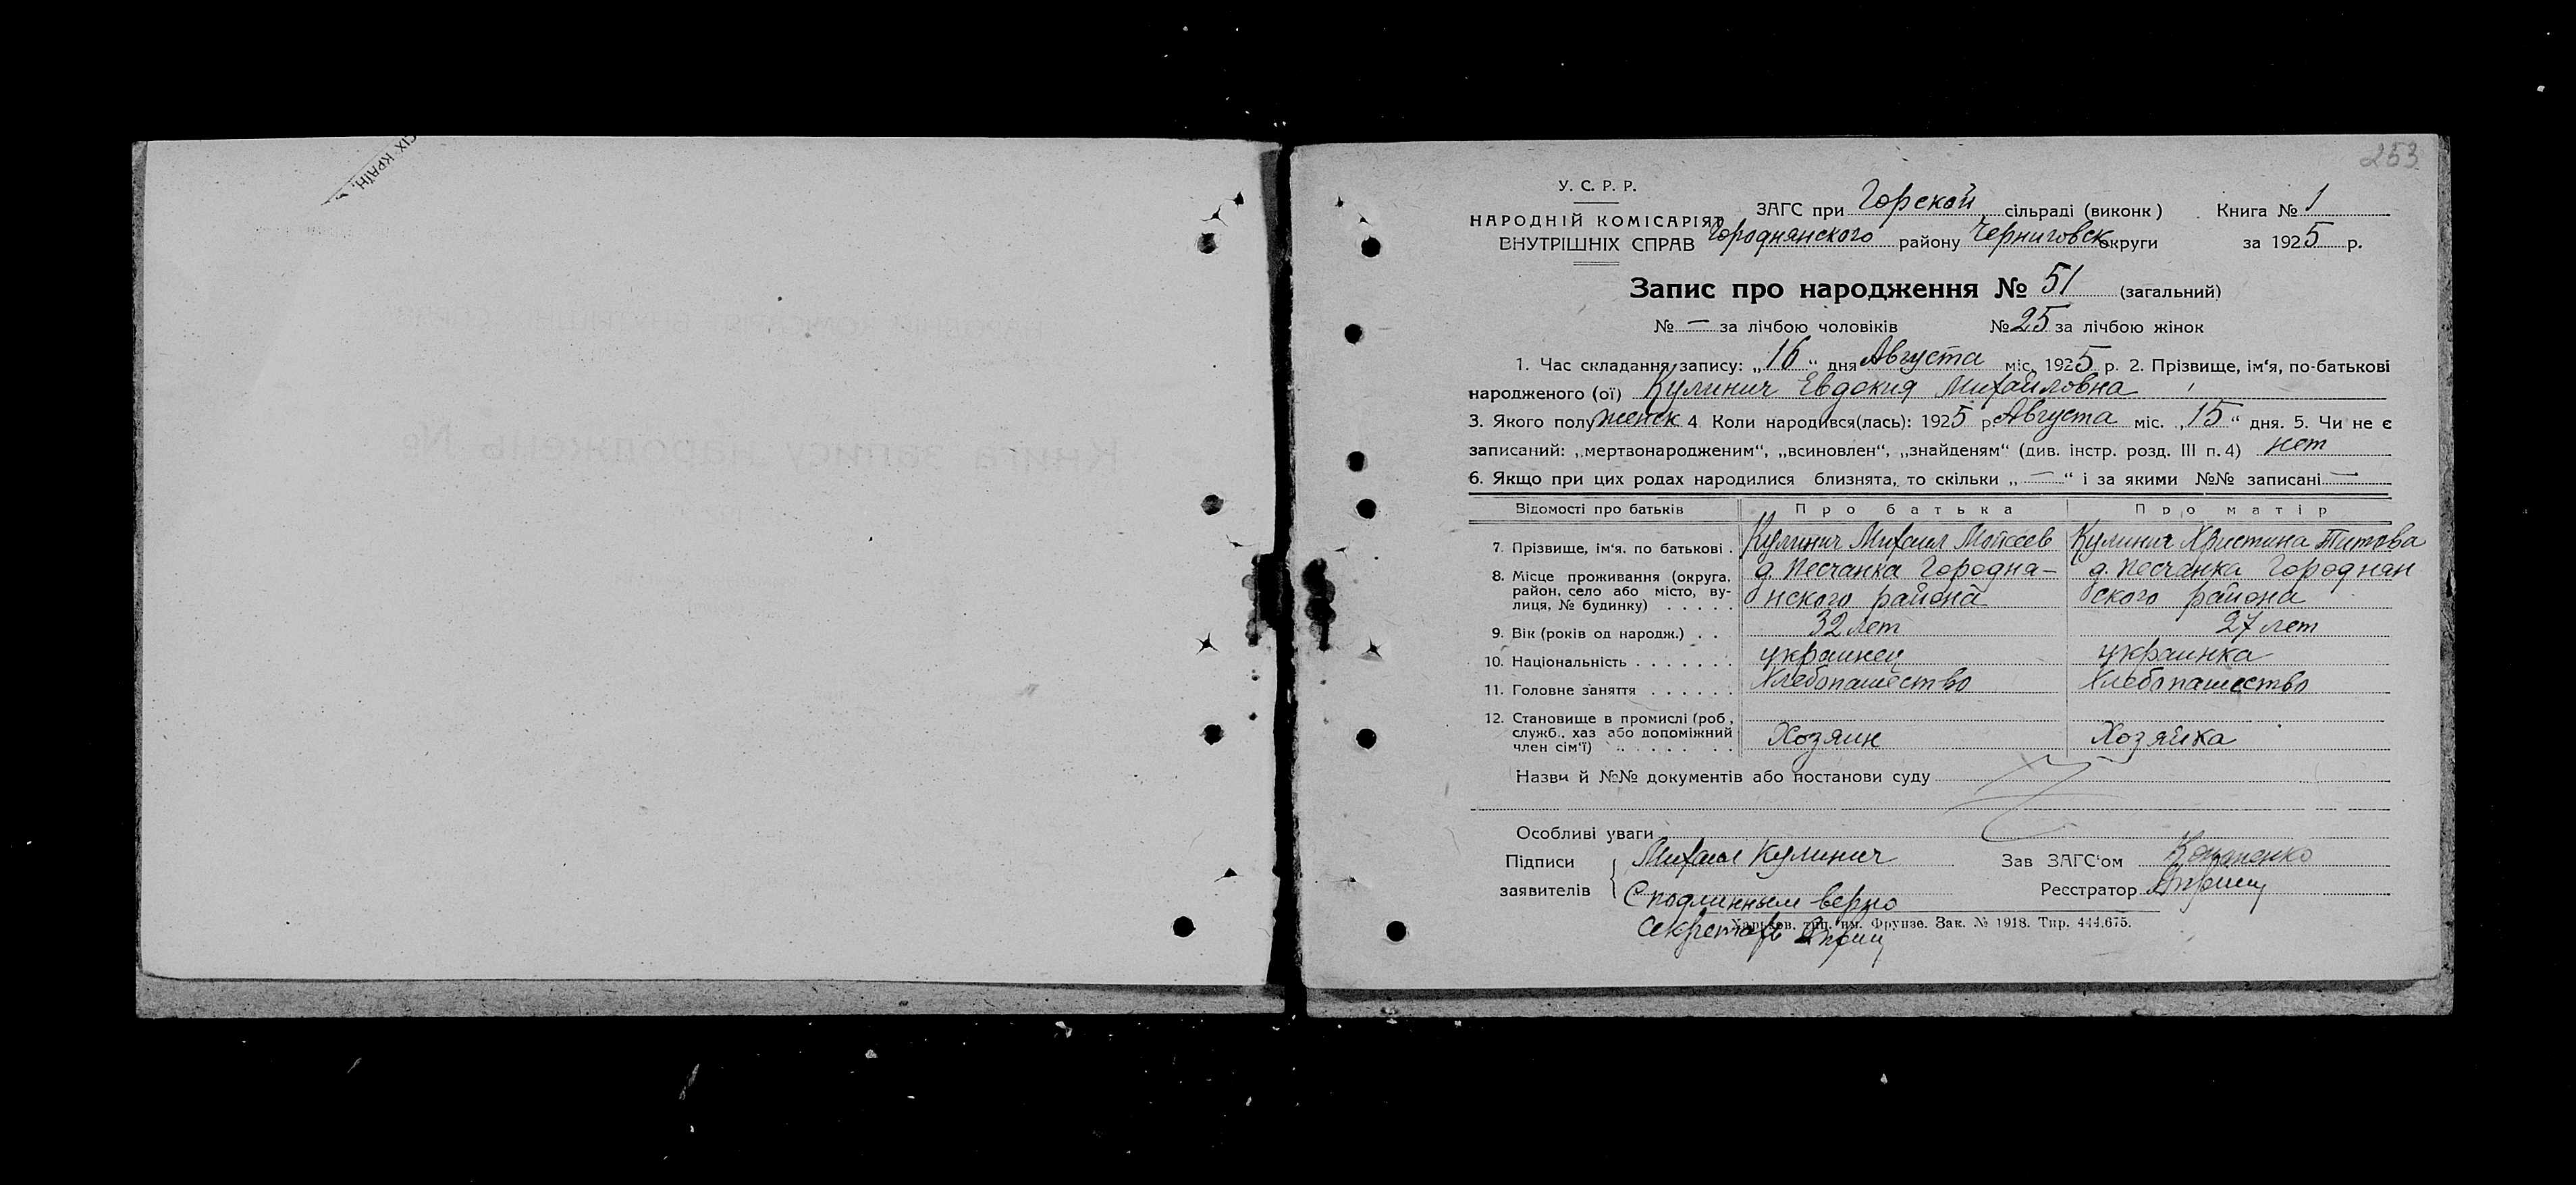 СІХ КРАЇН,
253
У. С. Р. Р.
НАРОДНІЙ КОМІСАРІЯТ
ВНУТРІШНІХ СПРАВ
ЗАГС при Горской сільраді (виконк) Книга № 1
Городнянского району Черниговск округи за 1925 р.
Запис про народження № 51 (загальний)
№ — за лічбою чоловіків № 25 за лічбою жінок
1. Час складання запису: „16“ дня Августа міс. 1925 р. 2. Прізвище, ім‘я, по-батькові
народженого (ої) Кулинич Евдокия Михайловна
3. Якого полу женск 4 Коли народився(лась): 1925 р Августа міс. „15“ дня. 5. Чи не є
записаний: „мертвонародженим“, „всиновлен“, „знайденям“ (див. інстр. розд. III п. 4) нет
6. Якщо при цих родах народилися близнята, то скільки „—“ і за якими №№ записані —
Відомості про батьків Про батька Про матір
7. Прізвище, ім‘я, по батькові . Кулинич Михаил Мойсеев Кулинич Христина Титова
8. Місце проживання (округа, д. Песчанка Городня- д. Песчанка Городнян
район, село або місто, ву- нского района ского района
лиця, № будинку) . . . . .
9. Вік (років од народж.) . . 32 лет 27 лет
10. Національність . . . . . . . украинец украинка
11. Головне заняття . . . . . . Хлебопашество Хлебопашество
12. Становище в промислі (роб,
служб., хаз або допоміжний Хозяин Хозяйка
член сім‘ї) . . . . . . . .
Назви й №№ документів або постанови суду
Особливі уваги
Підписи Михаил Кулинич Зав ЗАГС‘ом
заявителів Реєстратор
С подлинным верно
Секретарь
Харьков, тип. им. Фрунзе. Зак. № 1918. Тир. 444.675.